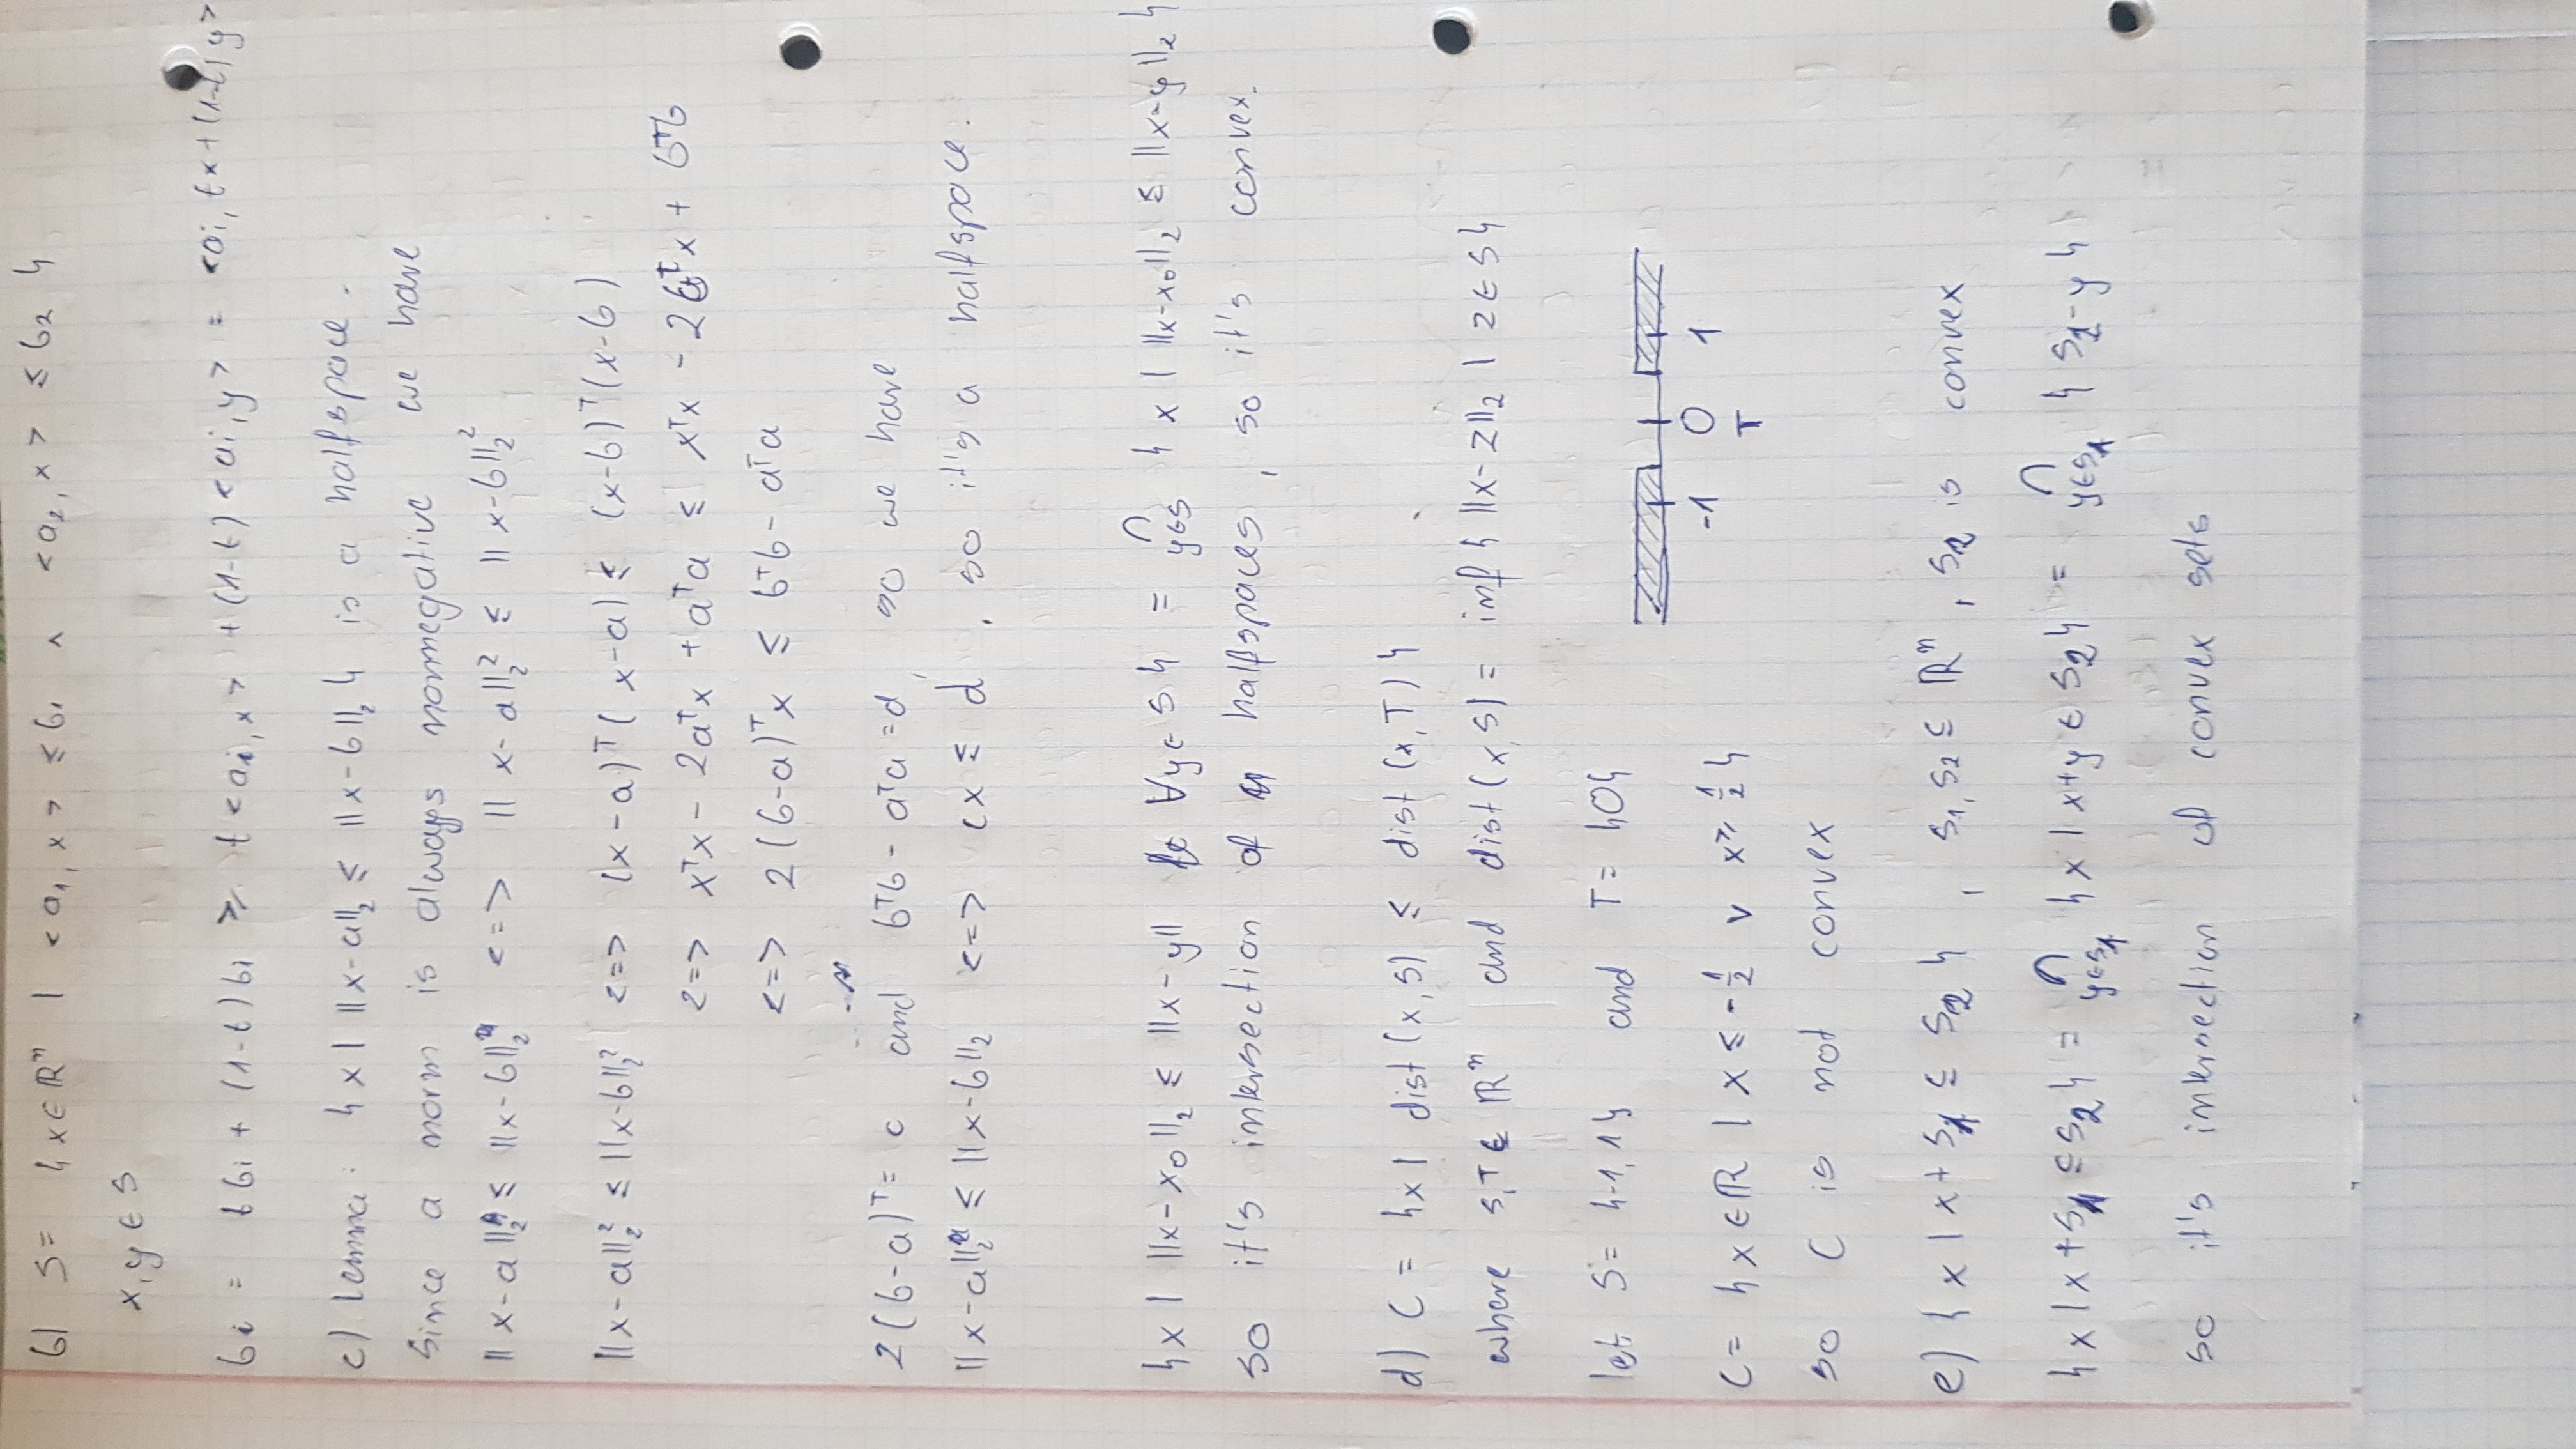 b) S = { x ∈ ℝⁿ | <a₁, x> ≤ b₁ ∧ <a₂, x> ≤ b₂ }
x, y ∈ S
bᵢ = t bᵢ + (1-t) bᵢ ≥ t <aᵢ, x> + (1-t) <aᵢ, y> = <aᵢ, tx + (1-t) y>
c) Lemma: { x | ||x-a||₂ ≤ ||x-b||₂ } is a halfspace.
Since a norm is always nonnegative we have
||x-a||₂ ≤ ||x-b||₂ <=> ||x-a||₂² ≤ ||x-b||₂²
||x-a||₂² ≤ ||x-b||₂² <=> (x-a)ᵀ(x-a) ≤ (x-b)ᵀ(x-b)
<=> xᵀx - 2aᵀx + aᵀa ≤ xᵀx - 2bᵀx + bᵀb
<=> 2(b-a)ᵀx ≤ bᵀb - aᵀa
2(b-a)ᵀ = c and bᵀb - aᵀa = d, so we have
||x-a||₂ ≤ ||x-b||₂ <=> cx ≤ d, so it's a halfspace.
{ x | ||x-x₀||₂ ≤ ||x-y|| ∀y∈S } = ∩ y∈S { x | ||x-x₀||₂ ≤ ||x-y||₂ }
so it's intersection of halfspaces, so it's convex.
d) C = { x | dist(x,S) ≤ dist(x,T) }
where S,T ⊆ ℝⁿ and dist(x,S) = inf { ||x-z||₂ | z∈S }
let S = {-1,1} and T = {0}
-1 0 1
T
C = { x∈ℝ | x ≤ -1/2 ∨ x ≥ 1/2 }
so C is not convex
e) { x | x + S₁ ⊆ S₂ }, S₁,S₂ ⊆ ℝⁿ, S₂ is convex
{ x | x + S₁ ⊆ S₂ } = ∩ y∈S₁ { x | x+y ∈ S₂ } = ∩ y∈S₁ { S₂-y }
so it's intersection of convex sets